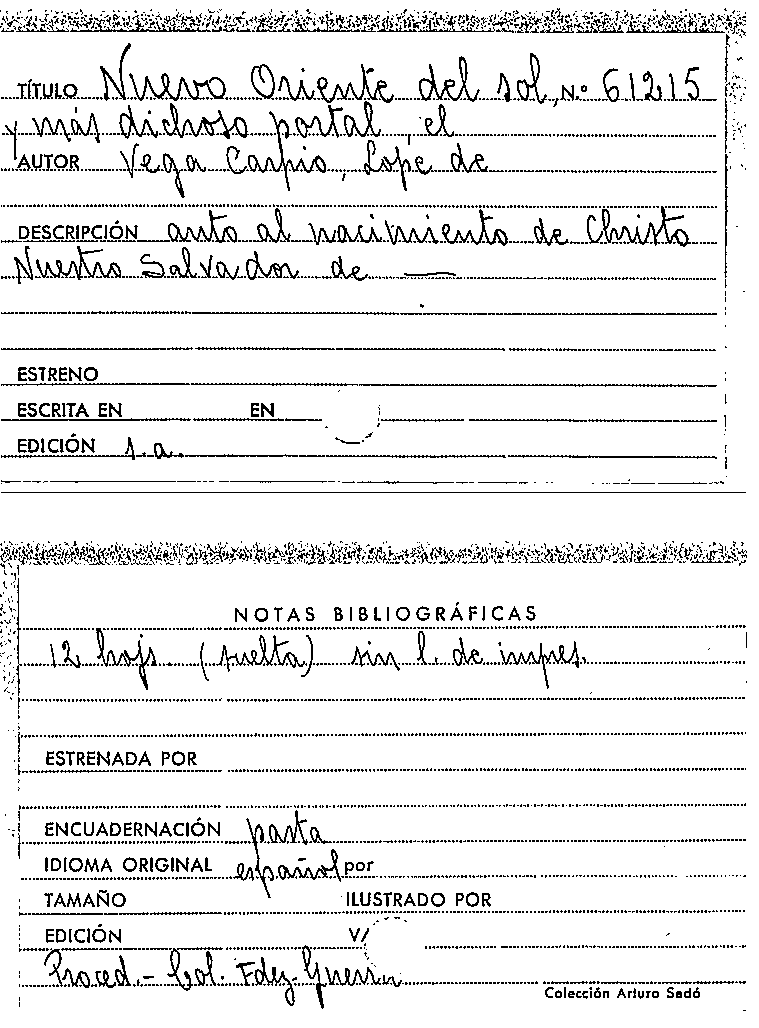 TÍTULO Nuevo Oriente del sol, N.º 61215
y más dichoso portal, el
AUTOR Vega Carpio, Lope de
DESCRIPCIÓN auto al nacimiento de Christo
Nuestro Salvador de —
ESTRENO
ESCRITA EN EN
EDICIÓN s.a.
NOTAS BIBLIOGRÁFICAS
12 hojs. (suelta) sin l. de impres.
ESTRENADA POR
ENCUADERNACIÓN pasta
IDIOMA ORIGINAL español por
TAMAÑO ILUSTRADO POR
EDICIÓN V/
Proced.- Col. Fdez-Guerra
Colección Arturo Sedó